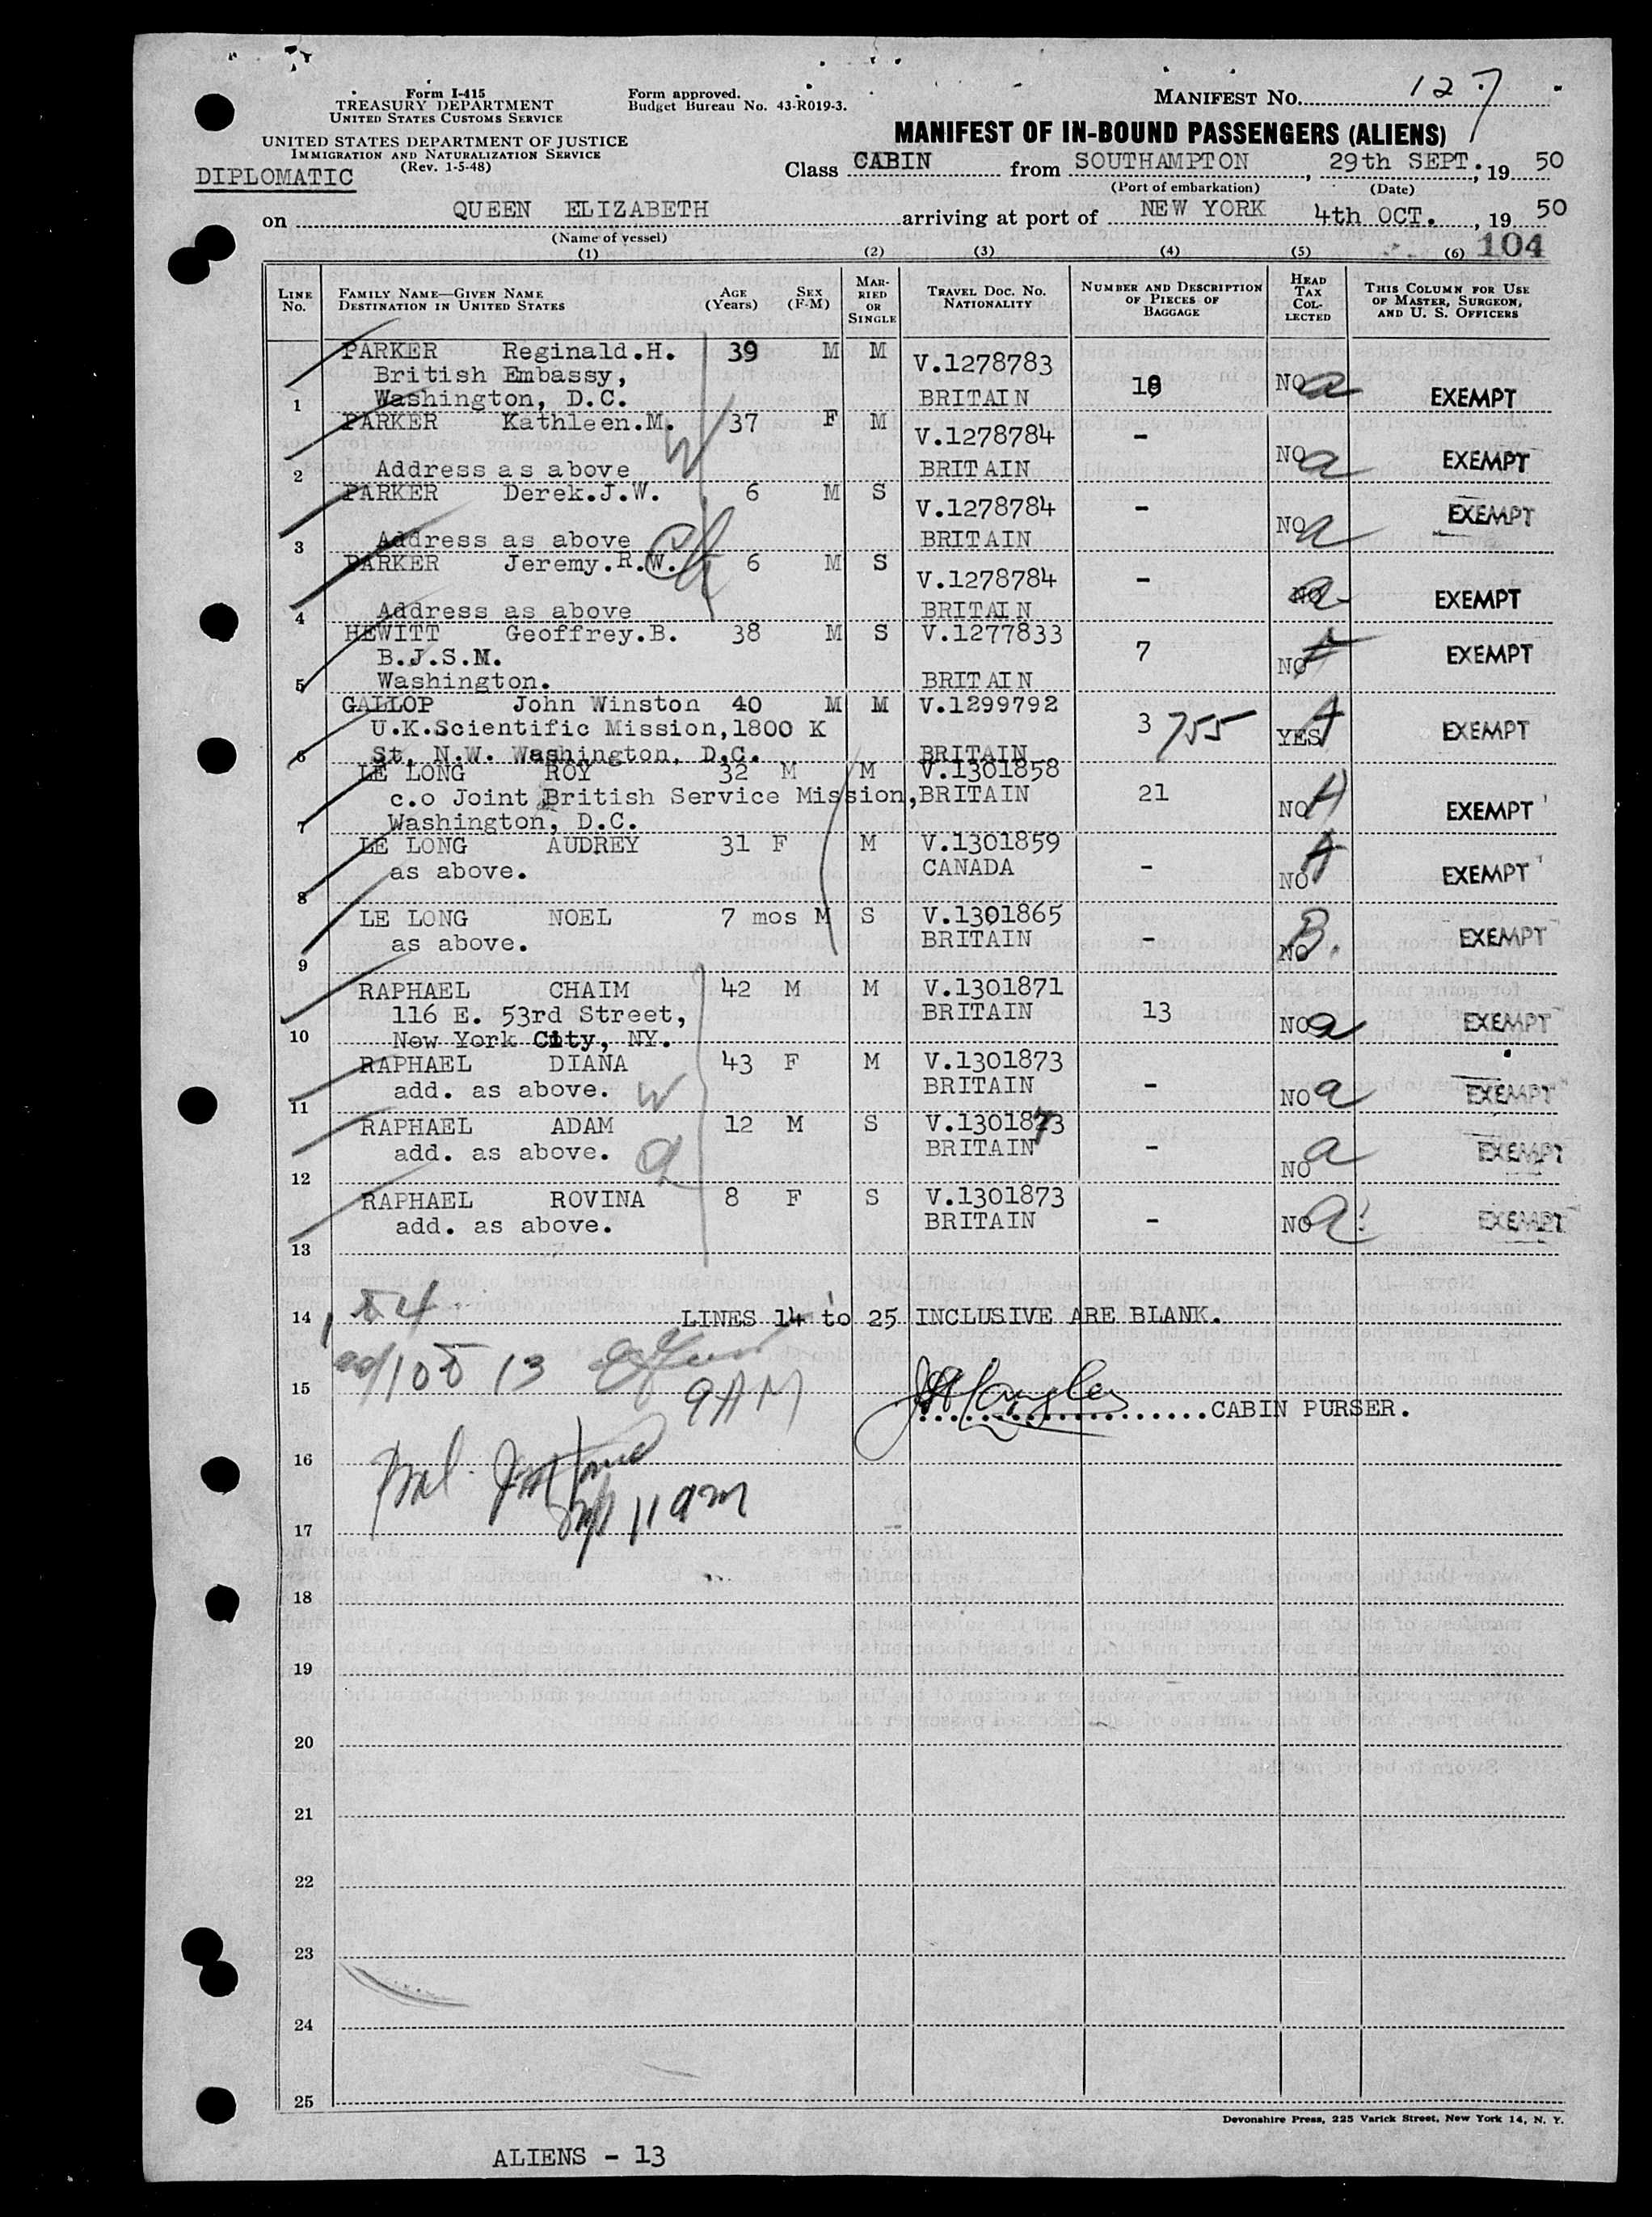 Form I-415
TREASURY DEPARTMENT
UNITED STATES CUSTOMS SERVICE
UNITED STATES DEPARTMENT OF JUSTICE
IMMIGRATION AND NATURALIZATION SERVICE
(Rev. 1-5-48)
DIPLOMATIC
Form approved.
Budget Bureau No. 43-R019-3.
MANIFEST No. 127
MANIFEST OF IN-BOUND PASSENGERS (ALIENS)
Class CABIN from SOUTHAMPTON, 29th SEPT., 19 50
(Port of embarkation) (Date)
on QUEEN ELIZABETH arriving at port of NEW YORK 4th OCT., 19 50
(Name of vessel)
(1) (2) (3) (4) (5) (6) 104
LINE No. FAMILY NAME—GIVEN NAME DESTINATION IN UNITED STATES AGE (Years) SEX (F-M) MARRIED OR SINGLE TRAVEL DOC. NO. NATIONALITY NUMBER AND DESCRIPTION OF PIECES OF BAGGAGE HEAD TAX COLLECTED THIS COLUMN FOR USE OF MASTER, SURGEON, AND U. S. OFFICERS
PARKER Reginald.H. 39 M M V.1278783
British Embassy,
1 Washington, D.C. BRITAIN NO a EXEMPT
PARKER Kathleen.M. W 37 F M V.1278784 -
2 Address as above BRITAIN NO a EXEMPT
PARKER Derek.J.W. 6 M S V.1278784 -
3 Address as above BRITAIN NO a EXEMPT
PARKER Jeremy.R.W. Ch 6 M S V.1278784 -
4 Address as above BRITAIN NO a EXEMPT
HEWITT Geoffrey.B. 38 M S V.1277833
B.J.S.M. 7
5 Washington. BRITAIN NO A EXEMPT
GALLOP John Winston 40 M M V.1299792
U.K.Scientific Mission,1800 K 3 755 YES A EXEMPT
6 St. N.W. Washington, D.C. BRITAIN
LE LONG ROY 32 M M V.1301858
c.o Joint British Service Mission, BRITAIN 21 NO A EXEMPT
7 Washington, D.C.
LE LONG AUDREY 31 F M V.1301859
8 as above. CANADA - NO A EXEMPT
LE LONG NOEL 7 mos M S V.1301865
9 as above. BRITAIN - NO B. EXEMPT
RAPHAEL CHAIM 42 M M V.1301871
116 E. 53rd Street, BRITAIN 13 NO a EXEMPT
10 New York City, NY.
RAPHAEL DIANA 43 F M V.1301873
11 add. as above. W BRITAIN - NO a EXEMPT
RAPHAEL ADAM 12 M S V.1301873
12 add. as above. BRITAIN - NO a EXEMPT
RAPHAEL ROVINA 8 F S V.1301873
13 add. as above. BRITAIN - NO a EXEMPT
14 LINES 14 to 25 INCLUSIVE ARE BLANK.
13
9AM
15 CABIN PURSER.
16
11 am
17
18
19
20
21
22
23
24
25
Devonshire Press, 225 Varick Street, New York 14, N. Y.
ALIENS - 13